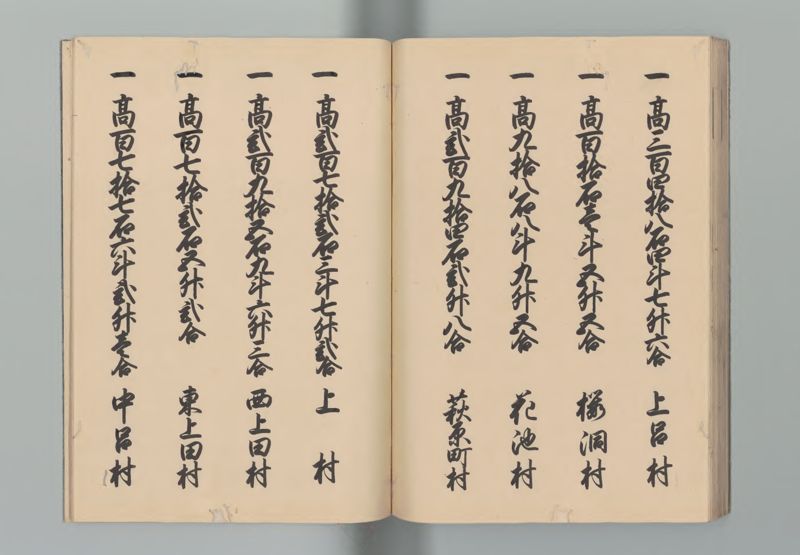 一 高三百四拾八石四斗七升六合 上呂村
一 高百拾石壱斗五升五合 桜洞村
一 高九拾八石八斗九升五合 花池村
一 高弐百九拾四石弐升八合 萩原町村
一 高弐百七拾弐石三斗七升弐合 上村
一 高弐百九拾五石九斗六升三合 西上田村
一 高百七拾弐石五升弐合 東上田村
一 高百七拾七石六斗弐升壱合 中呂村